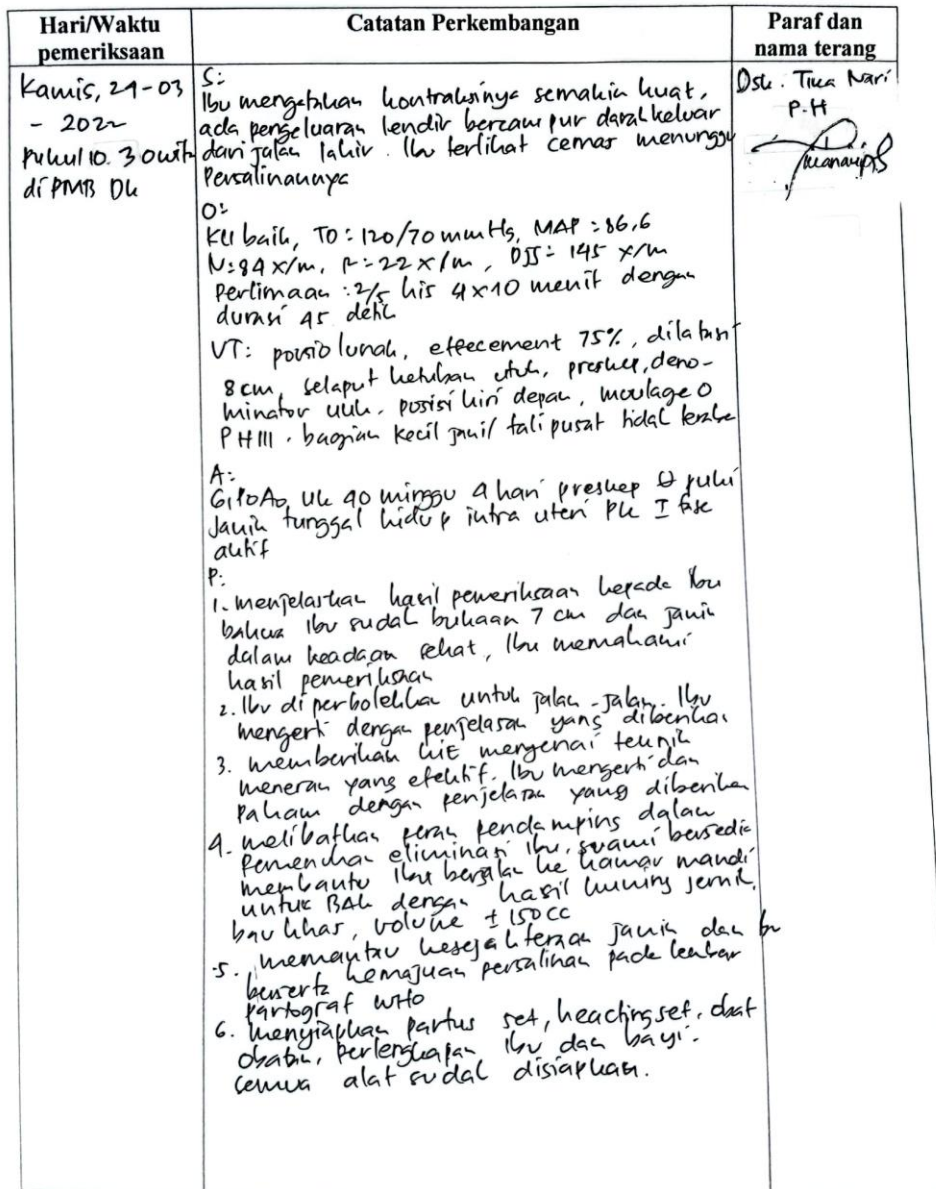 Hari/Waktu
pemeriksaan
Catatan Perkembangan
Paraf dan
nama terang
Kamis, 24-03
- 2022
Pukul 10.30 wib
di PMB DK
S:
Ibu mengatakan kontraksinya semakin kuat,
ada pengeluaran lendir bercampur darah keluar
dari jalan lahir. Ibu terlihat cemas menunggu
Persalinannya
O:
KU baik, TD: 120/70 mmHg, MAP: 86,6
N: 84 x/m, R: 22 x/m, DJJ: 145 x/m
Perlimaan: 2/5 his 4x10 menit dengan
durasi 45 detik
VT: porsio lunak, effecement 75%, dilatasi
8 cm, selaput ketuban utuh, preskep, deno-
minator uuk, posisi kiri depan, moulage 0
PHIII. bagian kecil janin/ tali pusat tidak teraba
A:
G1P0A0, UK 40 minggu 4 hari preskep puki
Janin tunggal hidup intra uteri PK I fase
aktif
P:
1. menjelaskan hasil pemeriksaan kepada Ibu
bahwa Ibu sudah bukaan 7 cm dan janin
dalam keadaan sehat, Ibu memahami
hasil pemeriksaan
2. Ibu diperbolehkan untuk jalan-jalan. Ibu
mengerti dengan penjelasan yang diberikan
3. memberikan KIE mengenai teknik
meneran yang efektif. Ibu mengerti dan
Paham dengan penjelasan yang diberikan
4. melibatkan peran pendamping dalam
Pemenuhan eliminasi Ibu, suami bersedia
membantu Ibu berjalan ke kamar mandi
untuk BAK dengan hasil kuning jernih,
bau khas, volume ± 150 cc
5. memantau kesejahteraan janin dan Ibu
beserta kemajuan persalinan pada lembar
partograf WHO
6. Menyiapkan partus set, heacting set, obat
obatan, perlengkapan Ibu dan bayi.
semua alat sudah disiapkan.
Dsk. Tika Nari
P.H